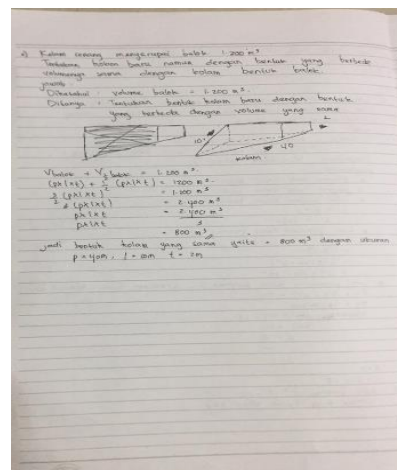 2) Kolam renang menyerupai balok 1.200 m³.
Tentukan kolam baru namun dengan bentuk yang berbeda
volumenya sama dengan kolam bentuk balok.
jawab
Diketahui : volume balok = 1.200 m³.
Ditanya : Tentukan bentuk kolam baru dengan bentuk
yang berbeda dengan volume yang sama
10
2
40
kolam
V balok + V ½ balok = 1.200 m³.
(p x l x t) + ½ (p x l x t) = 1200 m³.
3/2 (p x l x t) = 1.200 m³
3 (p x l x t) = 2.400 m³
p x l x t = 2.400 m³
3
p x l x t = 800 m³
jadi bentuk kolam yang sama yaitu = 800 m³ dengan ukuran
p = 40m, l = 10m t = 2m